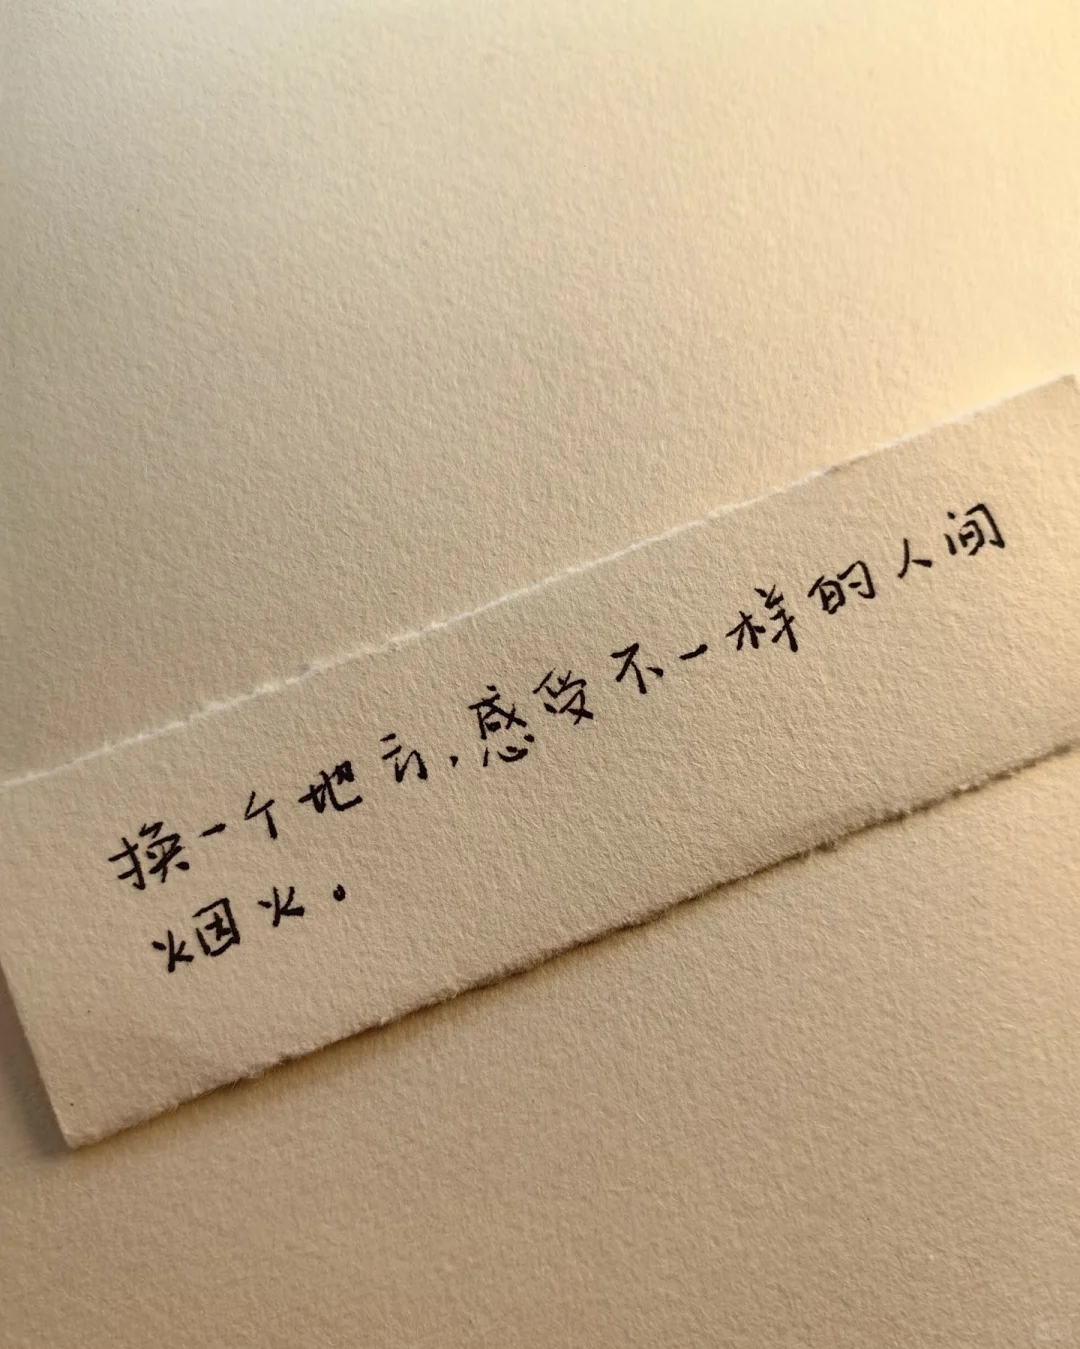 换一个地方,感受不一样的人间
烟火。